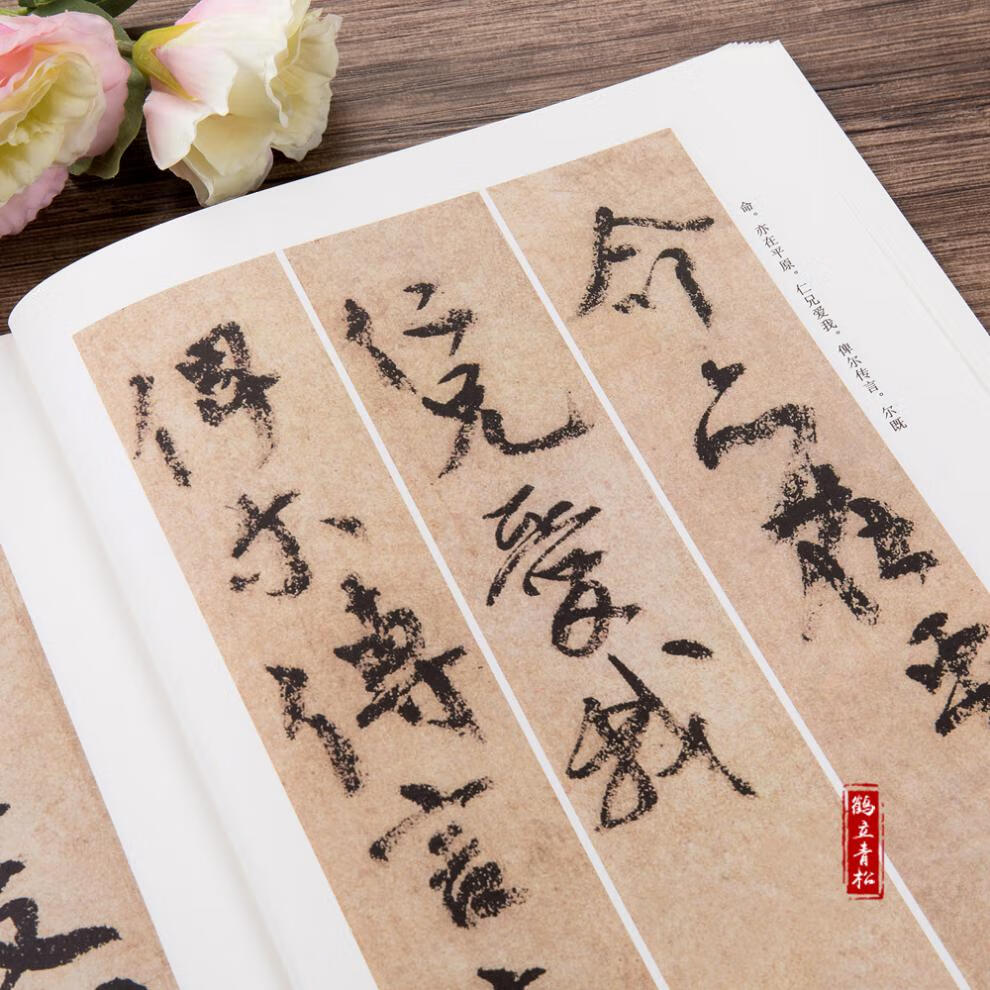 命。亦在平原。仁兄爱我。俾尔传言。尔既
命亦在平
仁兄愛我
俾尔傳言
鹤立青松